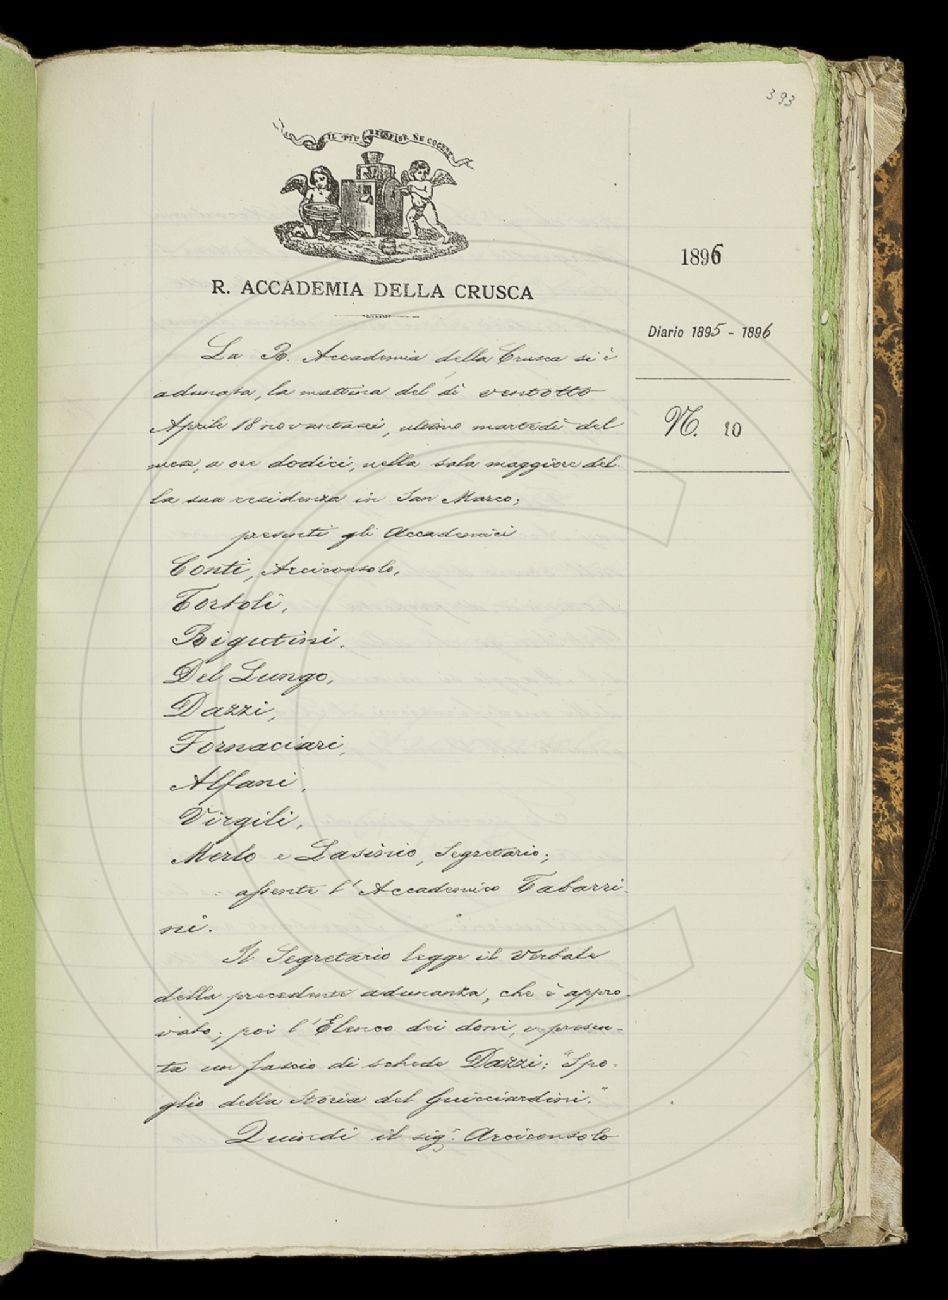 393
IL PIÙ BEL FIOR NE COGLIE
1896
R. ACCADEMIA DELLA CRUSCA
Diario 1895 - 1896
N. 10
La R. Accademia della Crusca si è
adunata, la mattina del dì ventotto
Aprile 18novantasei, ultimo martedì del
mese, a ore dodici, nella sala maggiore del-
la sua residenza in San Marco;
presenti gli Accademici
Conti, Arciconsolo,
Tortoli,
Rigutini,
Del Lungo,
Dazzi,
Fornaciari,
Alfani,
Virgili,
Merlo e Lasinio, Segretario;
assente l'Accademico Tabarri-
ni.
Il Segretario legge il Verbale
della precedente adunanza, che è appro-
vato; poi l'Elenco dei doni, e presen-
ta un fascio di schede Dazzi: "Spo-
glio della Storia del Guicciardini."
Quindi il sig. Arciconsolo